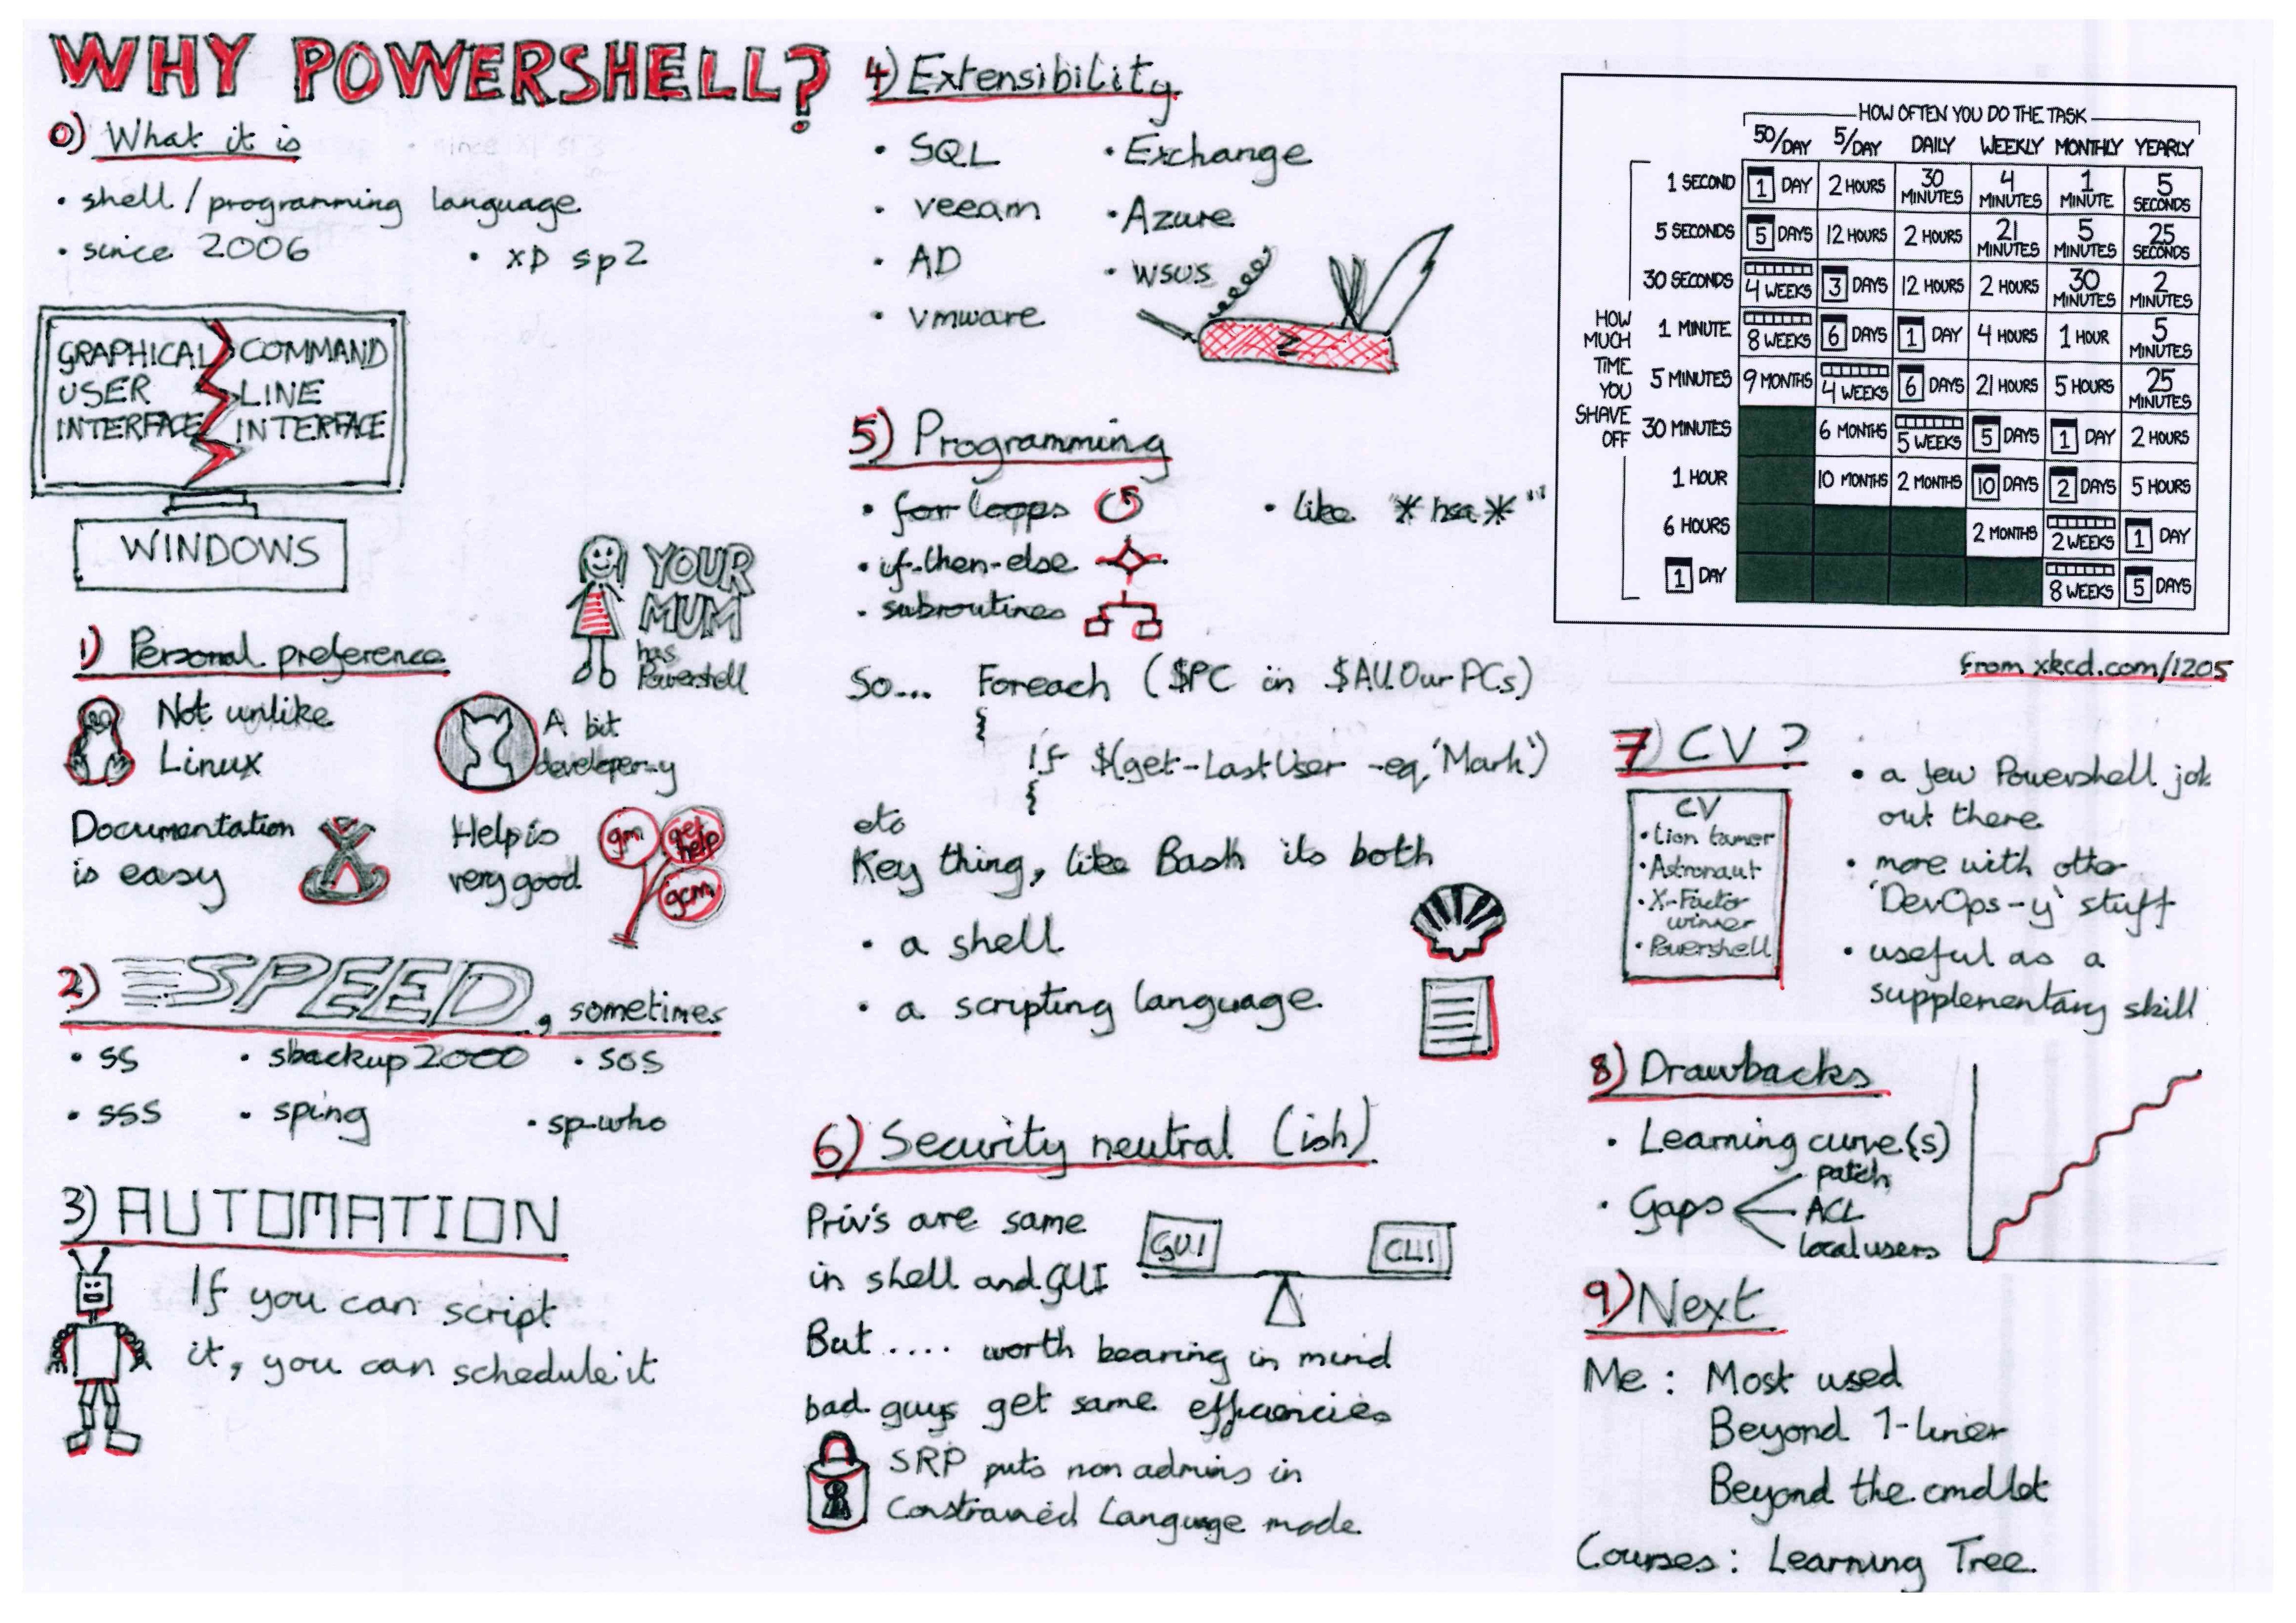 WHY POWERSHELL?
0) What it is
• shell / programming language
• since 2006 • XP sp2
GRAPHICAL USER INTERFACE
COMMAND LINE INTERFACE
WINDOWS
YOUR
MUM
has
Powershell
1) Personal preference
Not unlike
Linux
A bit
developer-y
Documentation
is easy
Help is
very good
gm
get help
gcm
2) SPEED, sometimes
• ss • sbackup2000 • sos
• sss • sping • sp-who
3) AUTOMATION
If you can script
it, you can schedule it
4) Extensibility
• SQL • Exchange
• veeam • Azure
• AD • wsus
• vmware
5) Programming
• for loops • like "*hsa*"
• if-then-else
• subroutines
So... Foreach ($PC in $AllOurPCs)
{
If $(get-LastUser -eq 'Mark')
{
etc
Key thing, like Bash its both
• a shell
• a scripting language
6) Security neutral (ish)
Priv's are same
in shell and GUI
GUI CLI
But .... worth bearing in mind
bad guys get same efficiencies
SRP puts non admins in
Constrained Language mode
HOW OFTEN YOU DO THE TASK
50/DAY 5/DAY DAILY WEEKLY MONTHLY YEARLY
HOW MUCH TIME YOU SHAVE OFF
1 SECOND 1 DAY 2 HOURS 30 MINUTES 4 MINUTES 1 MINUTE 5 SECONDS
5 SECONDS 5 DAYS 12 HOURS 2 HOURS 21 MINUTES 5 MINUTES 25 SECONDS
30 SECONDS 4 WEEKS 3 DAYS 12 HOURS 2 HOURS 30 MINUTES 2 MINUTES
1 MINUTE 8 WEEKS 6 DAYS 1 DAY 4 HOURS 1 HOUR 5 MINUTES
5 MINUTES 9 MONTHS 4 WEEKS 6 DAYS 21 HOURS 5 HOURS 25 MINUTES
30 MINUTES 6 MONTHS 5 WEEKS 5 DAYS 1 DAY 2 HOURS
1 HOUR 10 MONTHS 2 MONTHS 10 DAYS 2 DAYS 5 HOURS
6 HOURS 2 MONTHS 2 WEEKS 1 DAY
1 DAY 8 WEEKS 5 DAYS
from xkcd.com/1205
7) CV?
CV
• Lion tamer
• Astronaut
• X-Factor
winner
• Powershell
• a few Powershell job
out there
• more with other
'DevOps-y' stuff
• useful as a
supplementary skill
8) Drawbacks
• Learning curve(s)
• Gaps
patch
ACL
local users
9) Next
Me : Most used
Beyond 1-liner
Beyond the cmdlet
Courses : Learning Tree